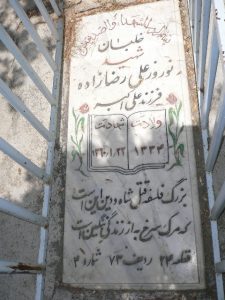 خلبان
شهید
نوروز علی رضازاده
فرزند علی اکبر
ولادت شهادت
۱۳۳۴ ۱۳۶۰/۱/۲۲
بزرگ فلسفه قتل شاه دین این است
که مرگ سرخ به از زندگی ننگین است
قطعه ۲۴ ردیف ۷۳ شماره ۴